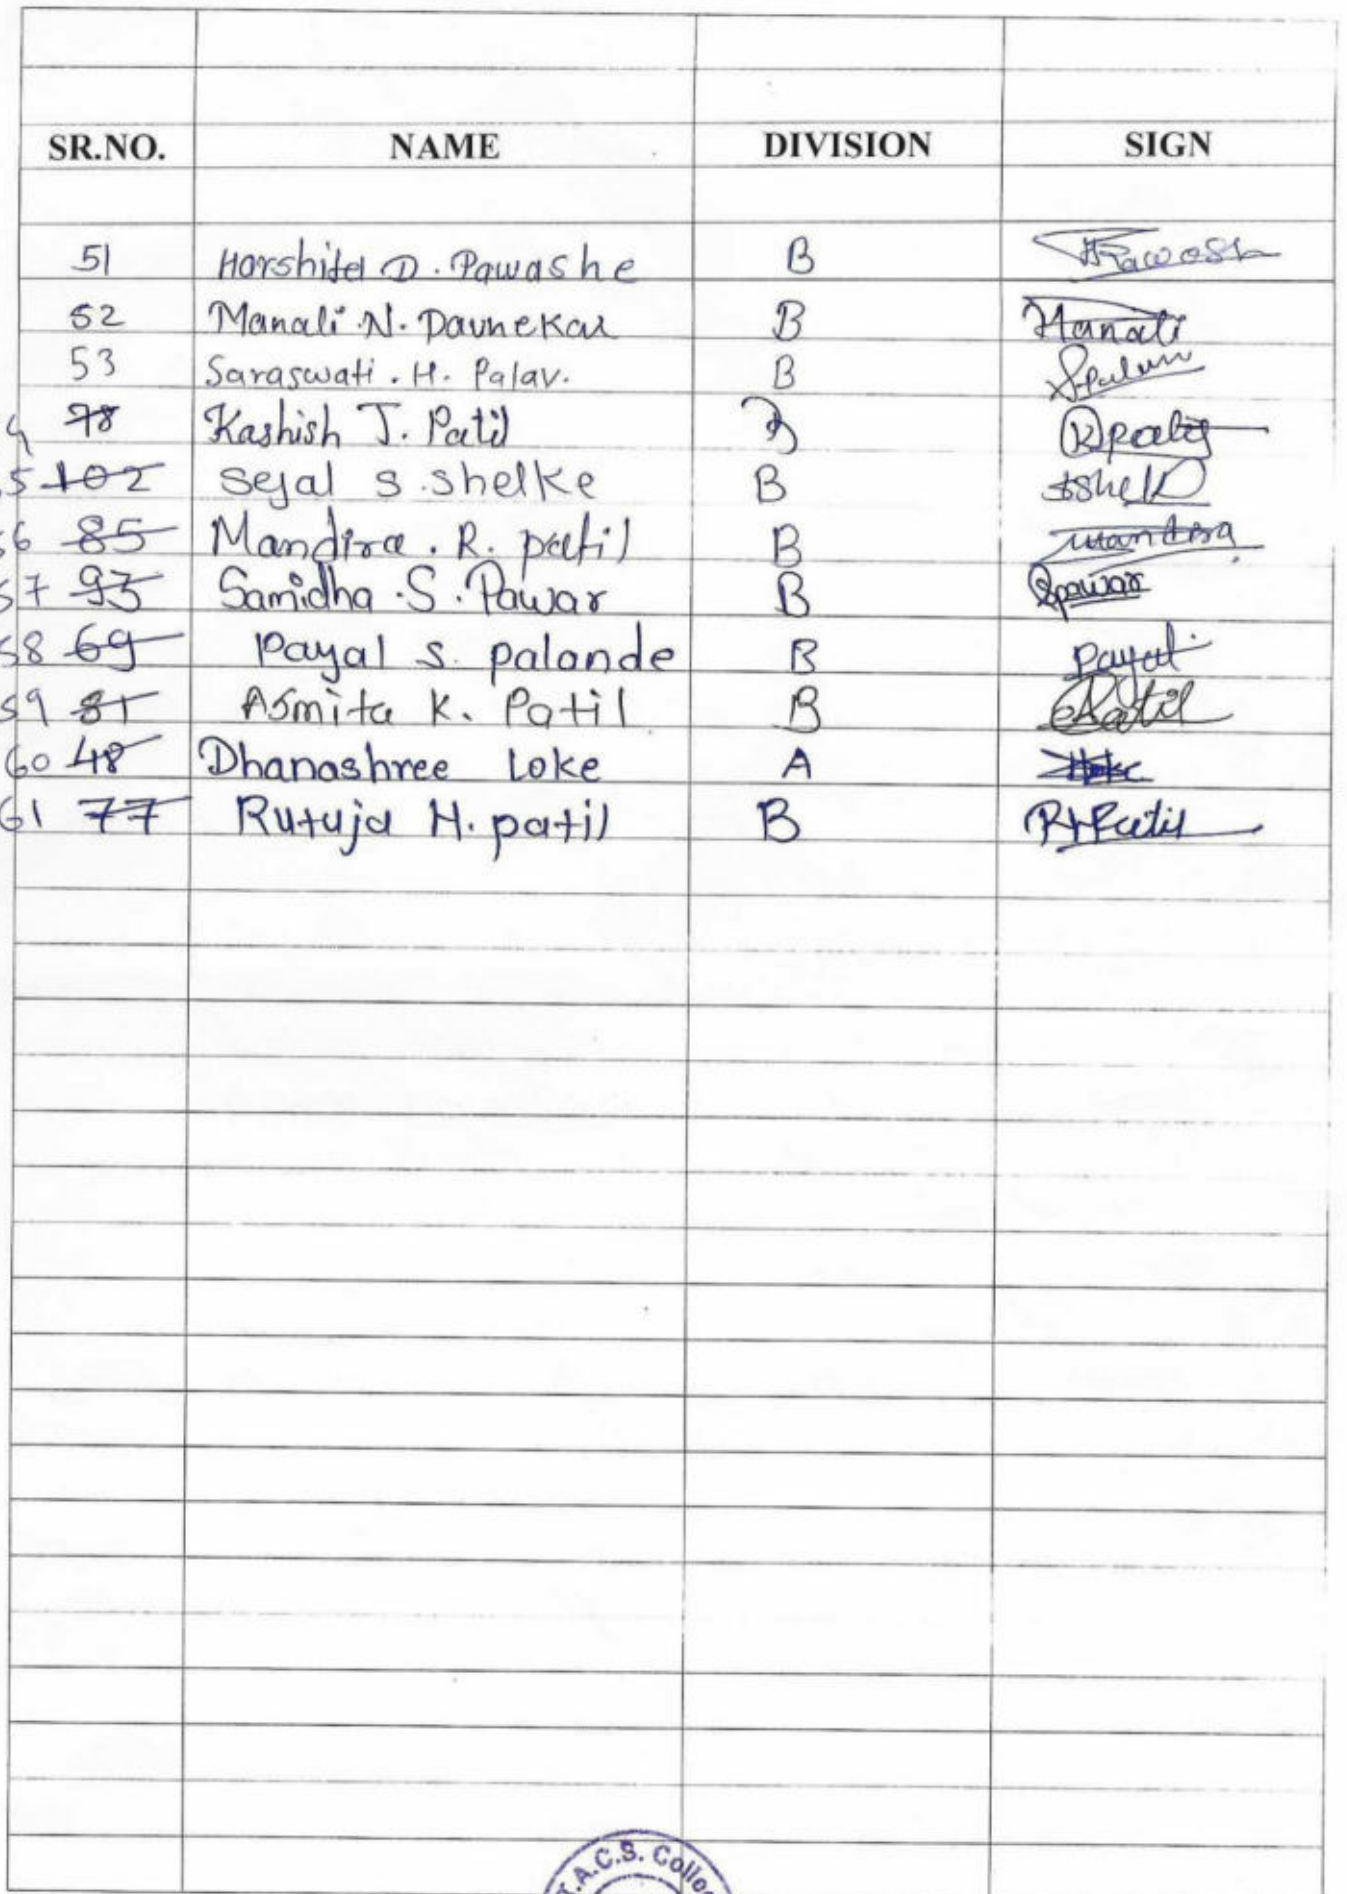 SR.NO. NAME DIVISION SIGN
51 Harshita D. Pawashe B
52 Manali N. Davnekar B Manali
53 Saraswati. H. Palav. B
78 Kashish J. Patil B
5 102 Sejal s. shelke B
56 85 Mandira. R. patil B Mandira
57 93 Samidha. S. Pawar B Spawar
58 69 Payal s. palande B Payal
59 81 Asmita K. Patil B
60 48 Dhanashree Loke A
61 77 Rutuja H. patil B RHPatil
.A.C.S. Colle